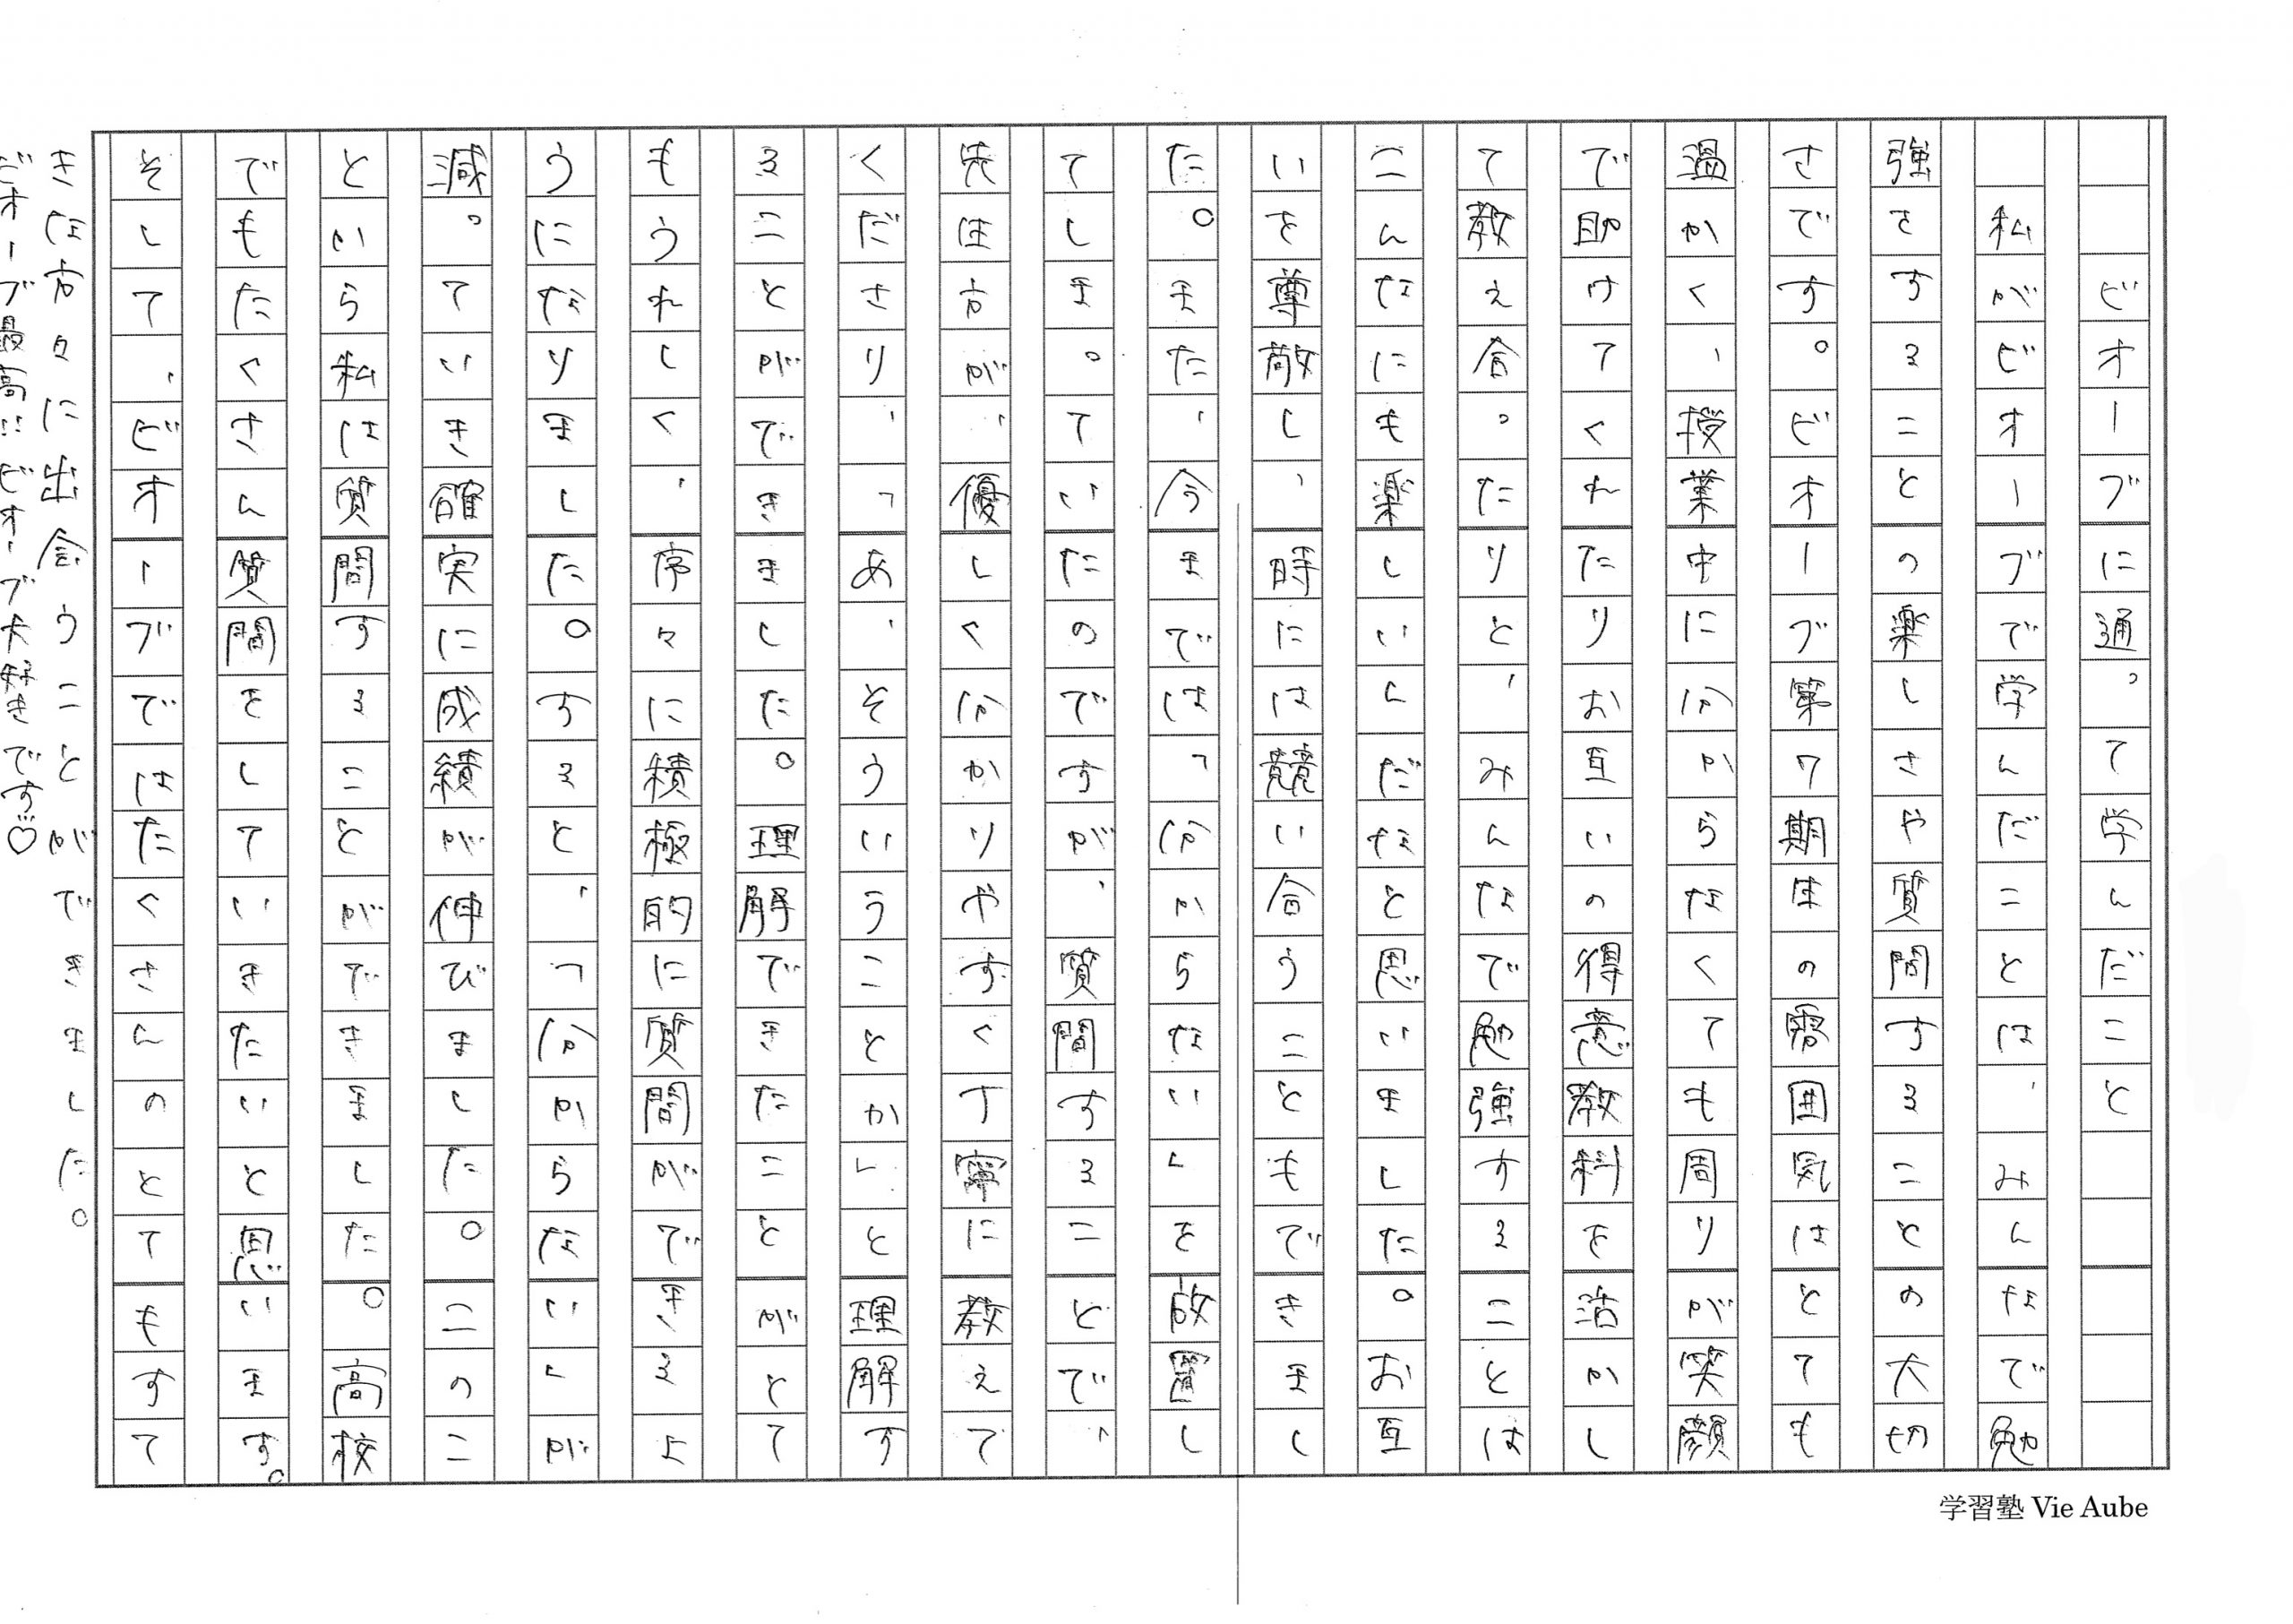 ビオーブに通って学んだこと
私がビオーブで学んだことは、みんなで勉
強をすることの楽しさや質問することの大切
さです。ビオーブ第7期生の雰囲気はとても
温かく、授業中に分からなくても周りが笑顔
で助けてくれたりお互いの得意教科を活かし
て教え合ったりと、みんなで勉強することは
こんなにも楽しいんだなと思いました。お互
いを尊敬し、時には競い合うこともできまし
た。また、今までは「分からない」を放置し
てしまっていたのですが、質問することで、
先生方が、優しく分かりやすく丁寧に教えて
くださり、「あ、そういうことか」と理解す
ることができました。理解できたことがとて
もうれしく、序々に積極的に質問ができるよ
うになりました。すると、「分からない」が
減っていき確実に成績が伸びました。このこ
とから私は質問することができました。高校
でもたくさん質問をしていきたいと思います。
そして、ビオーブではたくさんのとてもすて
きな方々に出会うことができました。
ビオーブ最高!!ビオーブ大好きです!!♡
学習塾 Vie Aube